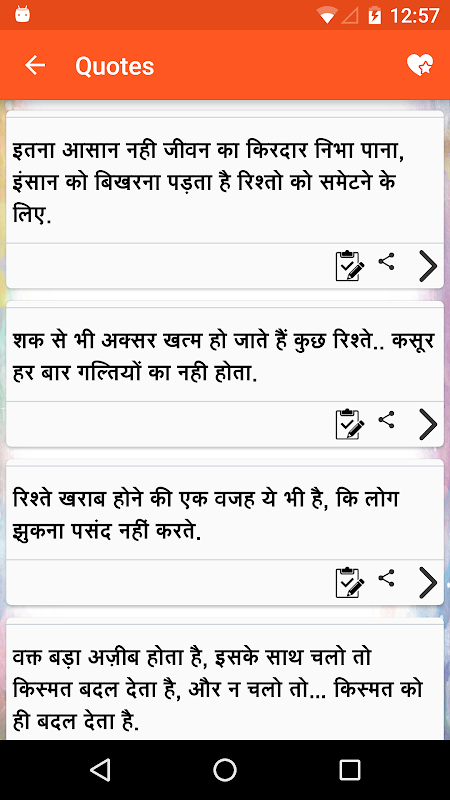 12:57
Quotes
इतना आसान नही जीवन का किरदार निभा पाना,
इंसान को बिखरना पड़ता है रिश्तो को समेटने के
लिए.
शक से भी अक्सर खत्म हो जाते हैं कुछ रिश्ते.. कसूर
हर बार गल्तियों का नही होता.
रिश्ते खराब होने की एक वजह ये भी है, कि लोग
झुकना पसंद नहीं करते.
वक्त बड़ा अज़ीब होता है, इसके साथ चलो तो
किस्मत बदल देता है, और न चलो तो... किस्मत को
ही बदल देता है.